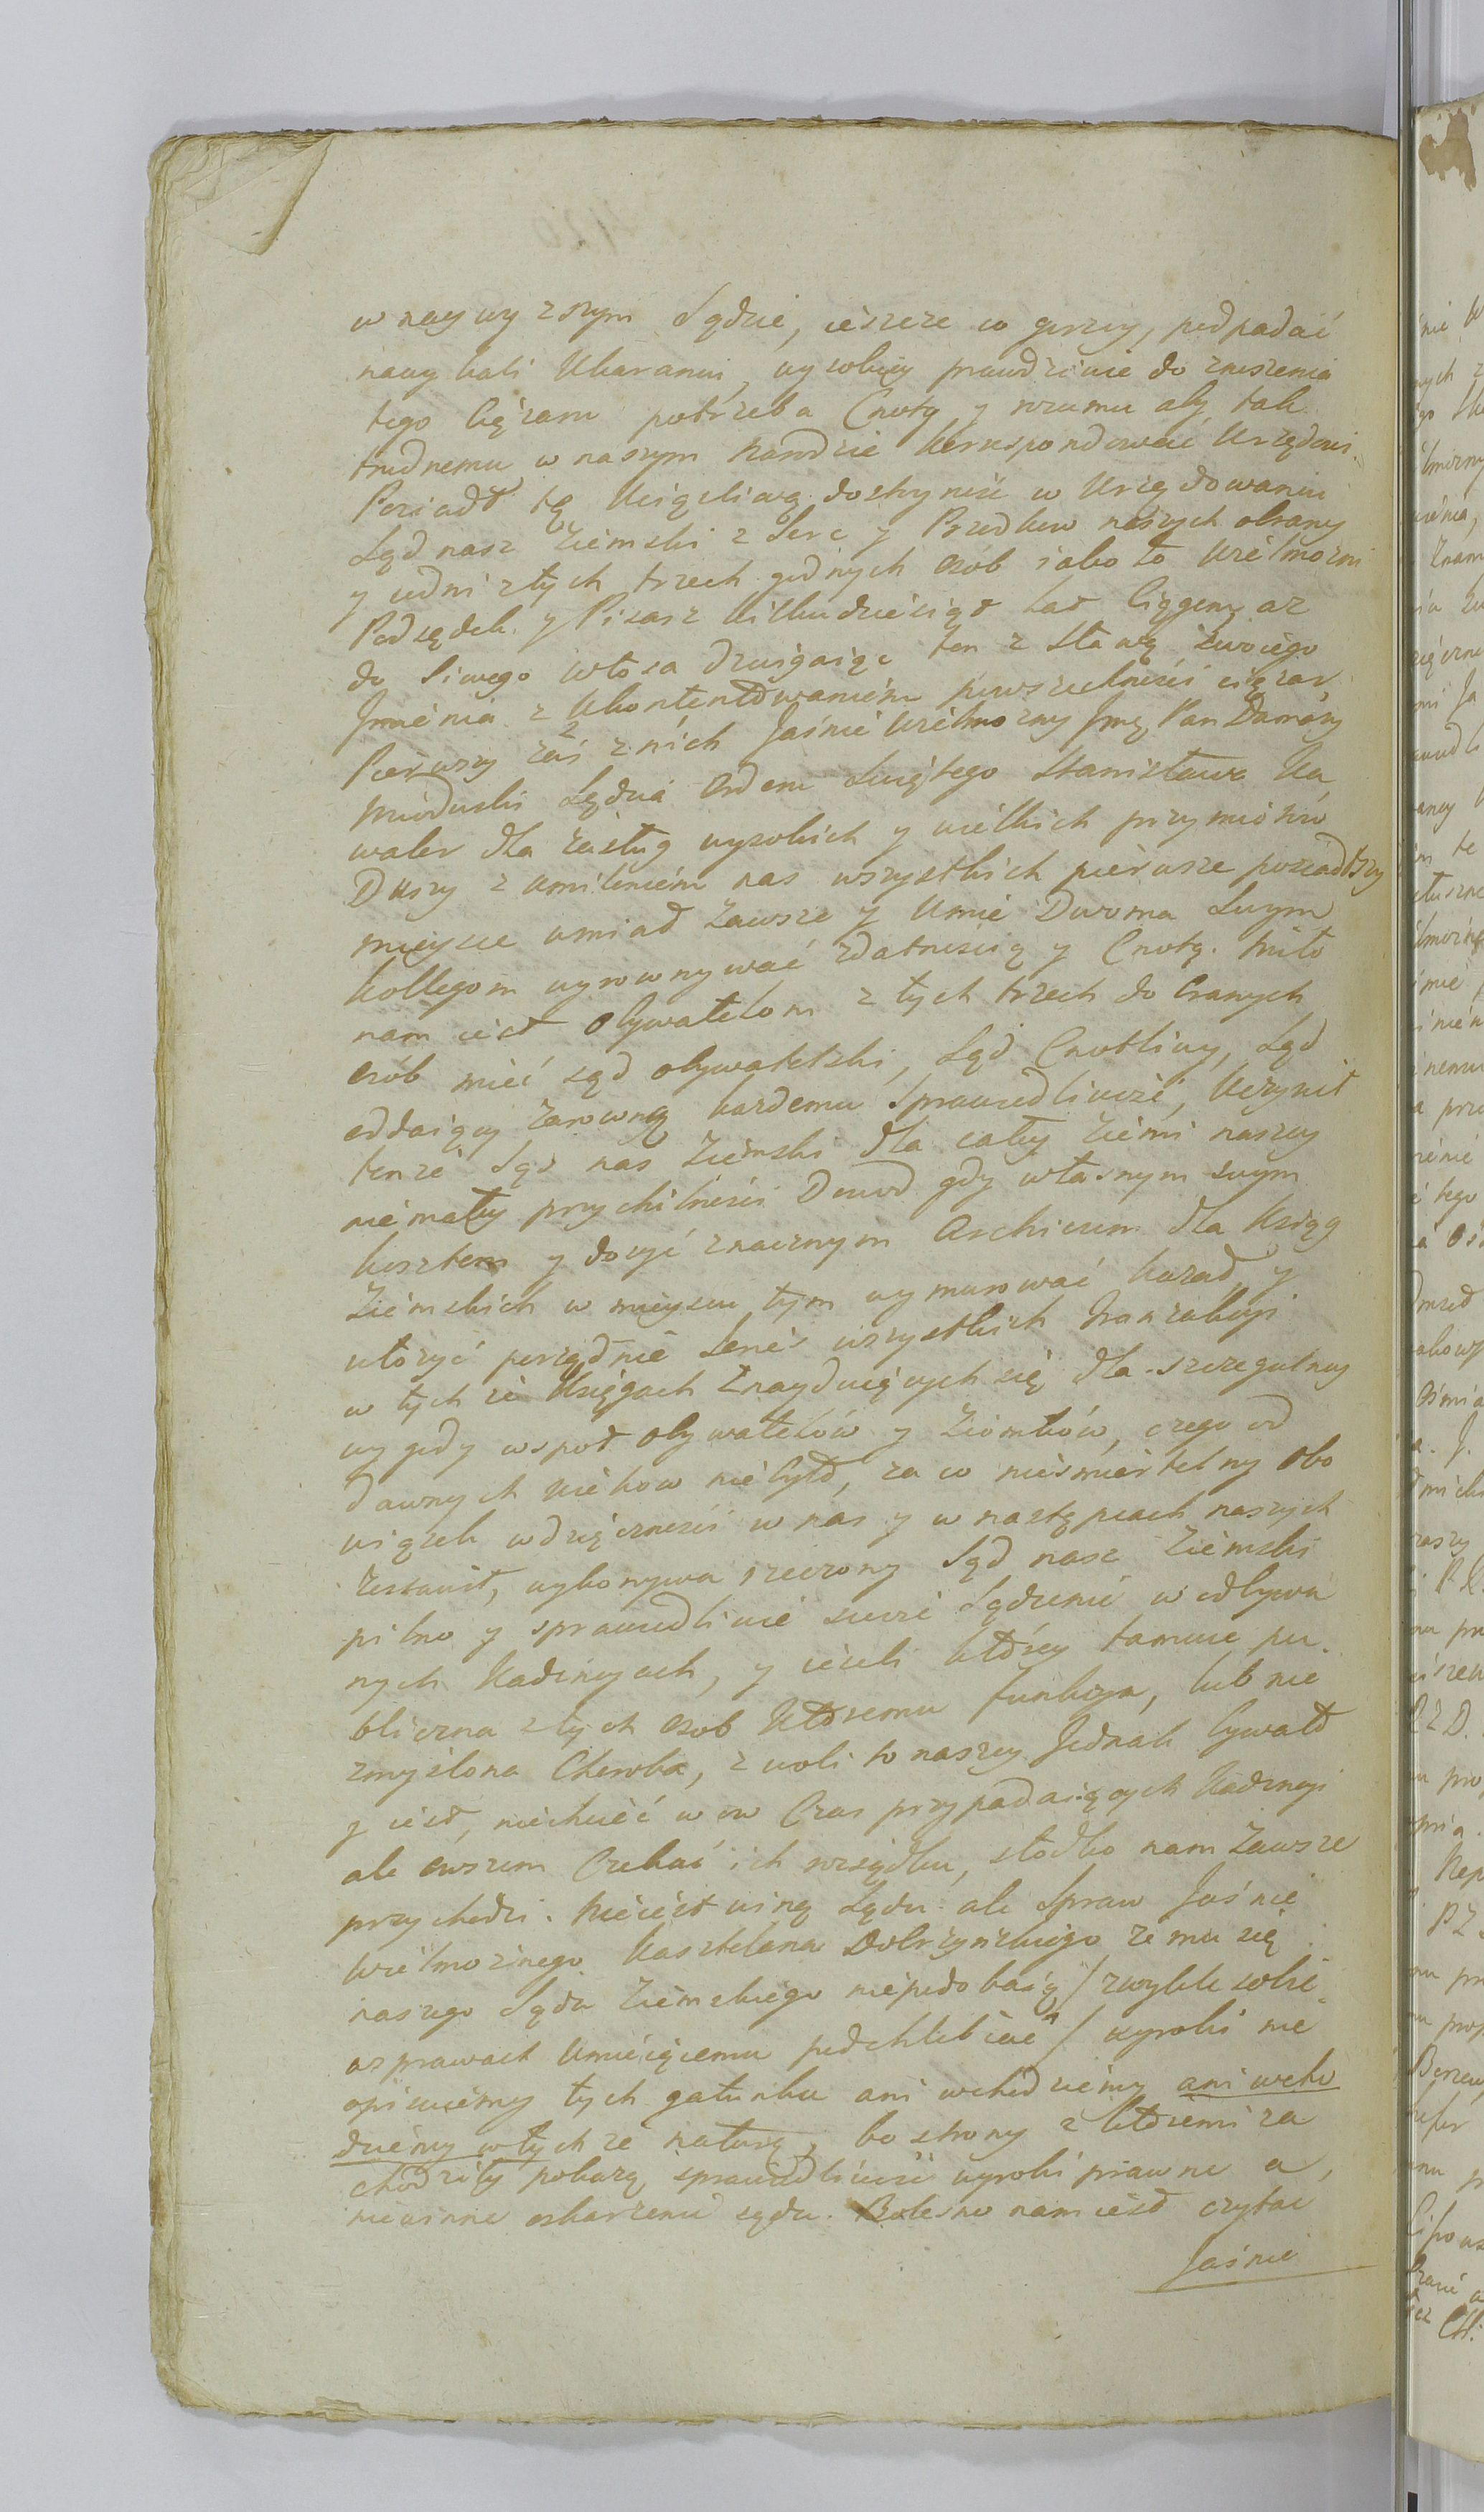 w naywyzszym Sądzie, ieszcze co gorszy, podpadać
nawykali Ukaraniu, wysokiey prawdziwie do zniszenia
tego Ciężaru potrzeba Cnoty y rozumu aby tak
trudnemu w naszym Narodzie Korrespondować Urzędowi.
Posiadł tę Uciążliwą dostoyność w Urzędowaniu
Sąd nasz Ziemski z Serc y Przodkow naszych obrany
y iedni z tych trzech godnych Osób iako to Wielmożni
Podsędek y Pisarz kilkudziesiąt Lat Ciągiem, az
do Siwego Włosa Dzwigaiąc ten z Sławą swoiego
Jmienia z Ukontentowaniem powszechności ciężar,
Pierwszy zaś z nich Jaśnie Wielmozny Jmę Pan Damazy
Mioduski Sędzia Orderu Swiętego Stanisława Ka,
waler dla zasług wysokich y wielkich przymiotów
Duszy z umileniem nas wszystkich pierwsze posiadłszy
mieysce umiał zawsze y Umie Dwoma Swym
kollegom wyrownywać zdatnością y Cnotą. Miło
nam iest Obywatelom z tych trzech dobranych
Osób mieć sąd obywatelski, Sąd Cnotliwy, Sąd
oddaiący zarowną kazdemu Sprawiedliwość, Uczynił
tenże Sąd nas Ziemski dla całey Ziemi naszey
niemały przychilności Dowod gdy własnym swym
kosztem y dosyć znacznym Archiwum dla Ksiąg
Ziemskich w mieyscu tym wymurować kazał, y
ułozyć porządnie Seneś wszystkich tranzakcyi
w tych ze Księgach Znayduiących się dla szczegulney
wygody wspoł Obywatelów y Ziomków, czego od
dawnych wiekow niebyło, za co nieśmiertelny Obo
wiązek wdzięczności w nas y w następcach naszych
Zostawił, wykonywa rzeczony Sąd nasz Ziemski
pilno y sprawiedliwie swoie Sądzenie w odbywa
nych Kadencyach, y iezeli którey tamuie pu.
bliczna z tych Osob któremu funkcya, lub nie
zmyślona Choroba, z woli to naszey Jednak bywało
y iest, niechcieć w ow Czas przypadaiących Kadencyi
ale owszem Czekać ich rozsądku, słodko nam zawsze
przychodzi. Nieiest winą Sądu ale Spraw Jaśnie
Wielmożnego Kasztelana Dobrzyńskiego ze mu się
naszego Sądu Ziemskiego niepodobaią / zwykle sobie
w sprawach Umieiącemu podchlebiać / wyroki nie
opisuiemy tych gatunku ani wchodziemy ani wcho
dziemy w tych ze naturę, bo strony z któremi za
chodziły pokażą sprawiedliwość wyroki prawne a,
niewinne oskarzenie sądu. Bolesno nam iest czytac
Jaśnie